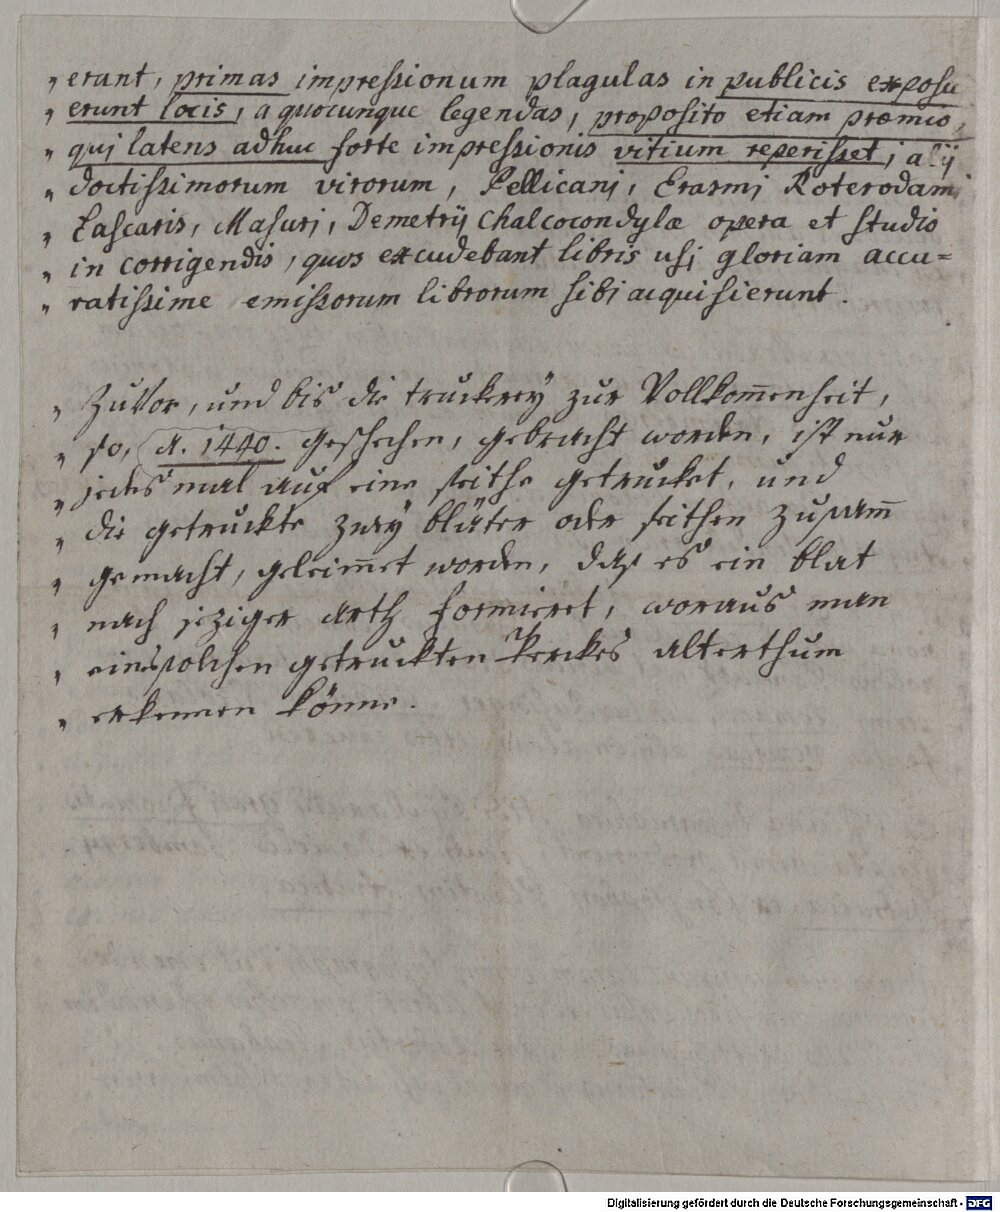 „ erant, primas impressionum plagulas in publicis exposu
„ erunt locis, a quocunque legendas, proposito etiam præmio,
„ quj latens adhuc forte impressionis vitium reperisset; alij
„ doctissimorum virorum, Pellicanj, Erasmj Roterodamj
„ Lascaris, Masurj, Demetrij Chalcocondylæ opera et studio
„ in corrigendis, quos excudebant libris usj gloriam accu=
„ ratissime emissorum librorum sibj acquisierunt.
„ Zuvor, und bis die truckrey zur Vollkom̅enheit,
„ so, A. 1440. geschehen, gebracht worden, ist nur
„ jedes mal auf eine seithe getrucket, und
„ die getruckte zwey bläter oder seithen zusam̅
„ gemacht, geleim̅et worden, daß es ein blat
„ nach jeziger arth formieret, woraus man
„ eines solchen getruckten Werckes alterthum
„ erkennen könne.
Digitalisierung gefördert durch die Deutsche Forschungsgemeinschaft - DFG